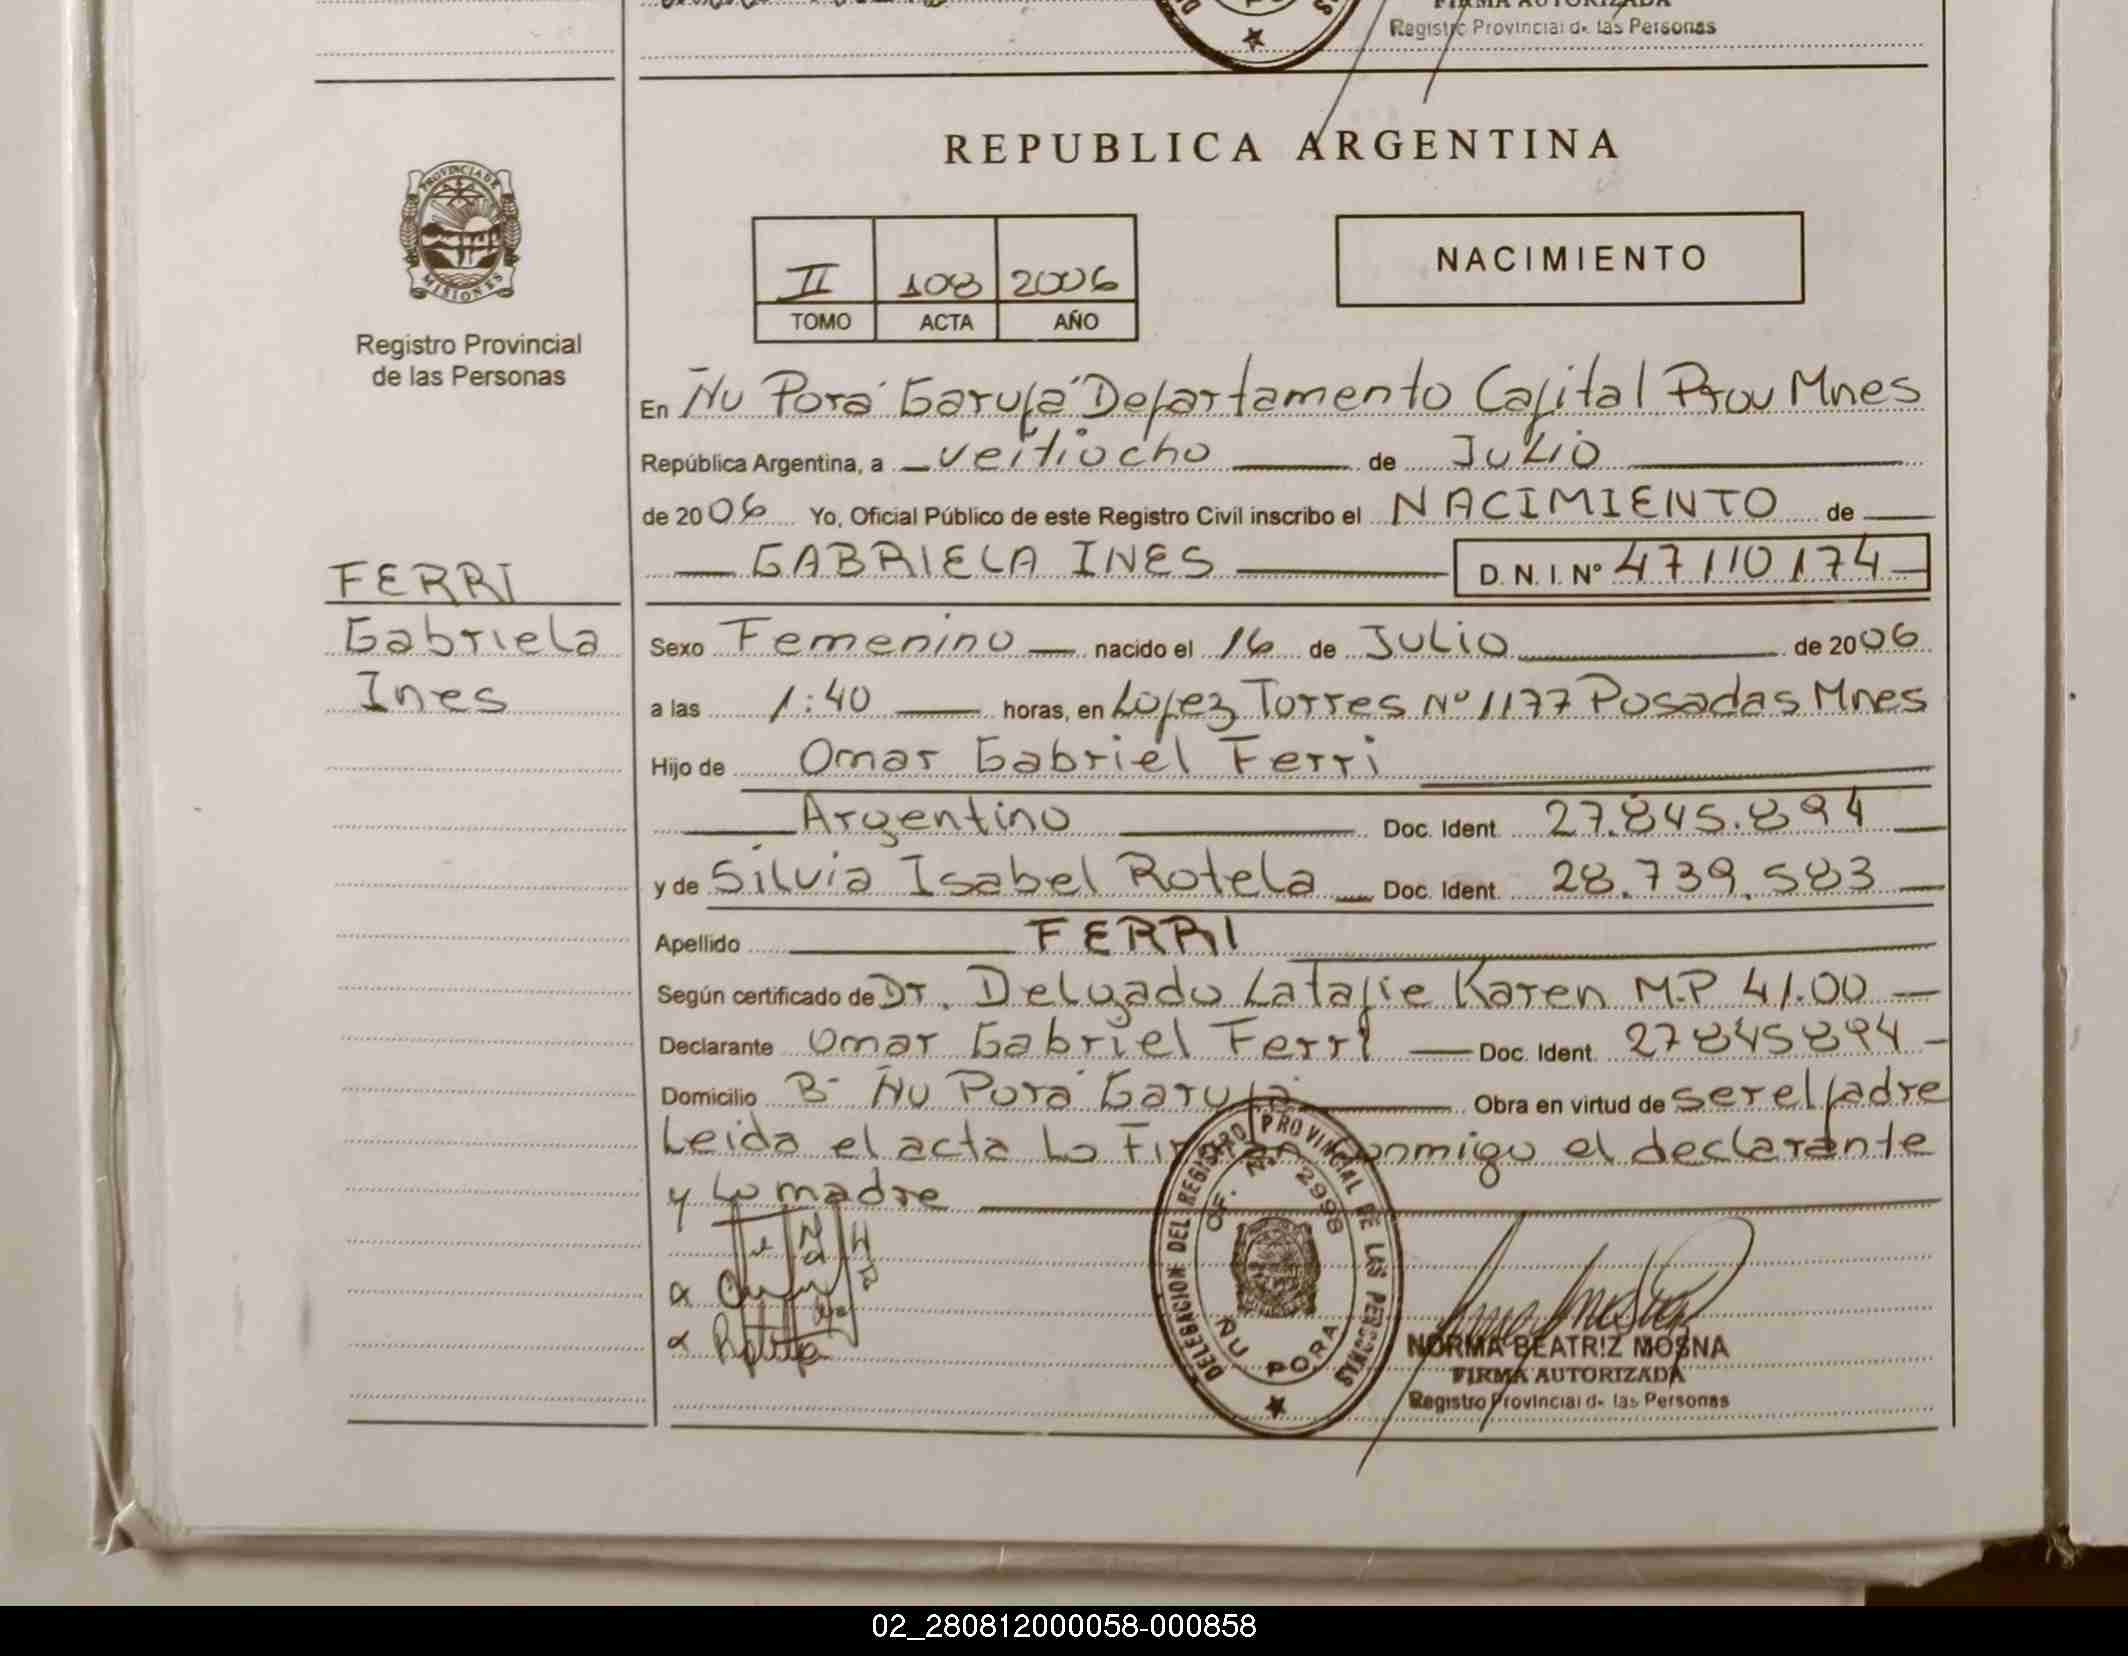 FIRMA AUTORIZADA
Registro Provincial de las Personas
REPUBLICA ARGENTINA
PROVINCIA DE
MISIONES
Registro Provincial
de las Personas
II 108 2006
TOMO ACTA AÑO
NACIMIENTO
En Ñu Porá Garupá Departamento Capital Prov Mnes
República Argentina, a veitiocho de Julio
de 2006 Yo, Oficial Público de este Registro Civil inscribo el NACIMIENTO de
GABRIELA INES D.N.I. Nº 47110174
FERRI
Gabriela
Ines
Sexo Femenino nacido el 16 de Julio de 2006
a las 1:40 horas, en Lopez Torres Nº 1177 Posadas Mnes
Hijo de Omar Gabriel Ferri
Argentino Doc. Ident. 27.845.894
y de Silvia Isabel Rotela Doc. Ident. 28.739.583
Apellido FERRI
Según certificado de Dr. Delgado Latapie Karen M.P 41.00
Declarante Omar Gabriel Ferri Doc. Ident. 27845894
Domicilio Bº Ñu Porá Garupá Obra en virtud de ser el padre
Leida el acta Lo Firman conmigo el declarante
y Lo madre
DELEGACION DEL REGISTRO PROVINCIAL DE LAS PERSONAS
OF. Nº 2998
ÑU PORA
NORMA BEATRIZ MOSNA
FIRMA AUTORIZADA
Registro Provincial de las Personas
02_280812000058-000858